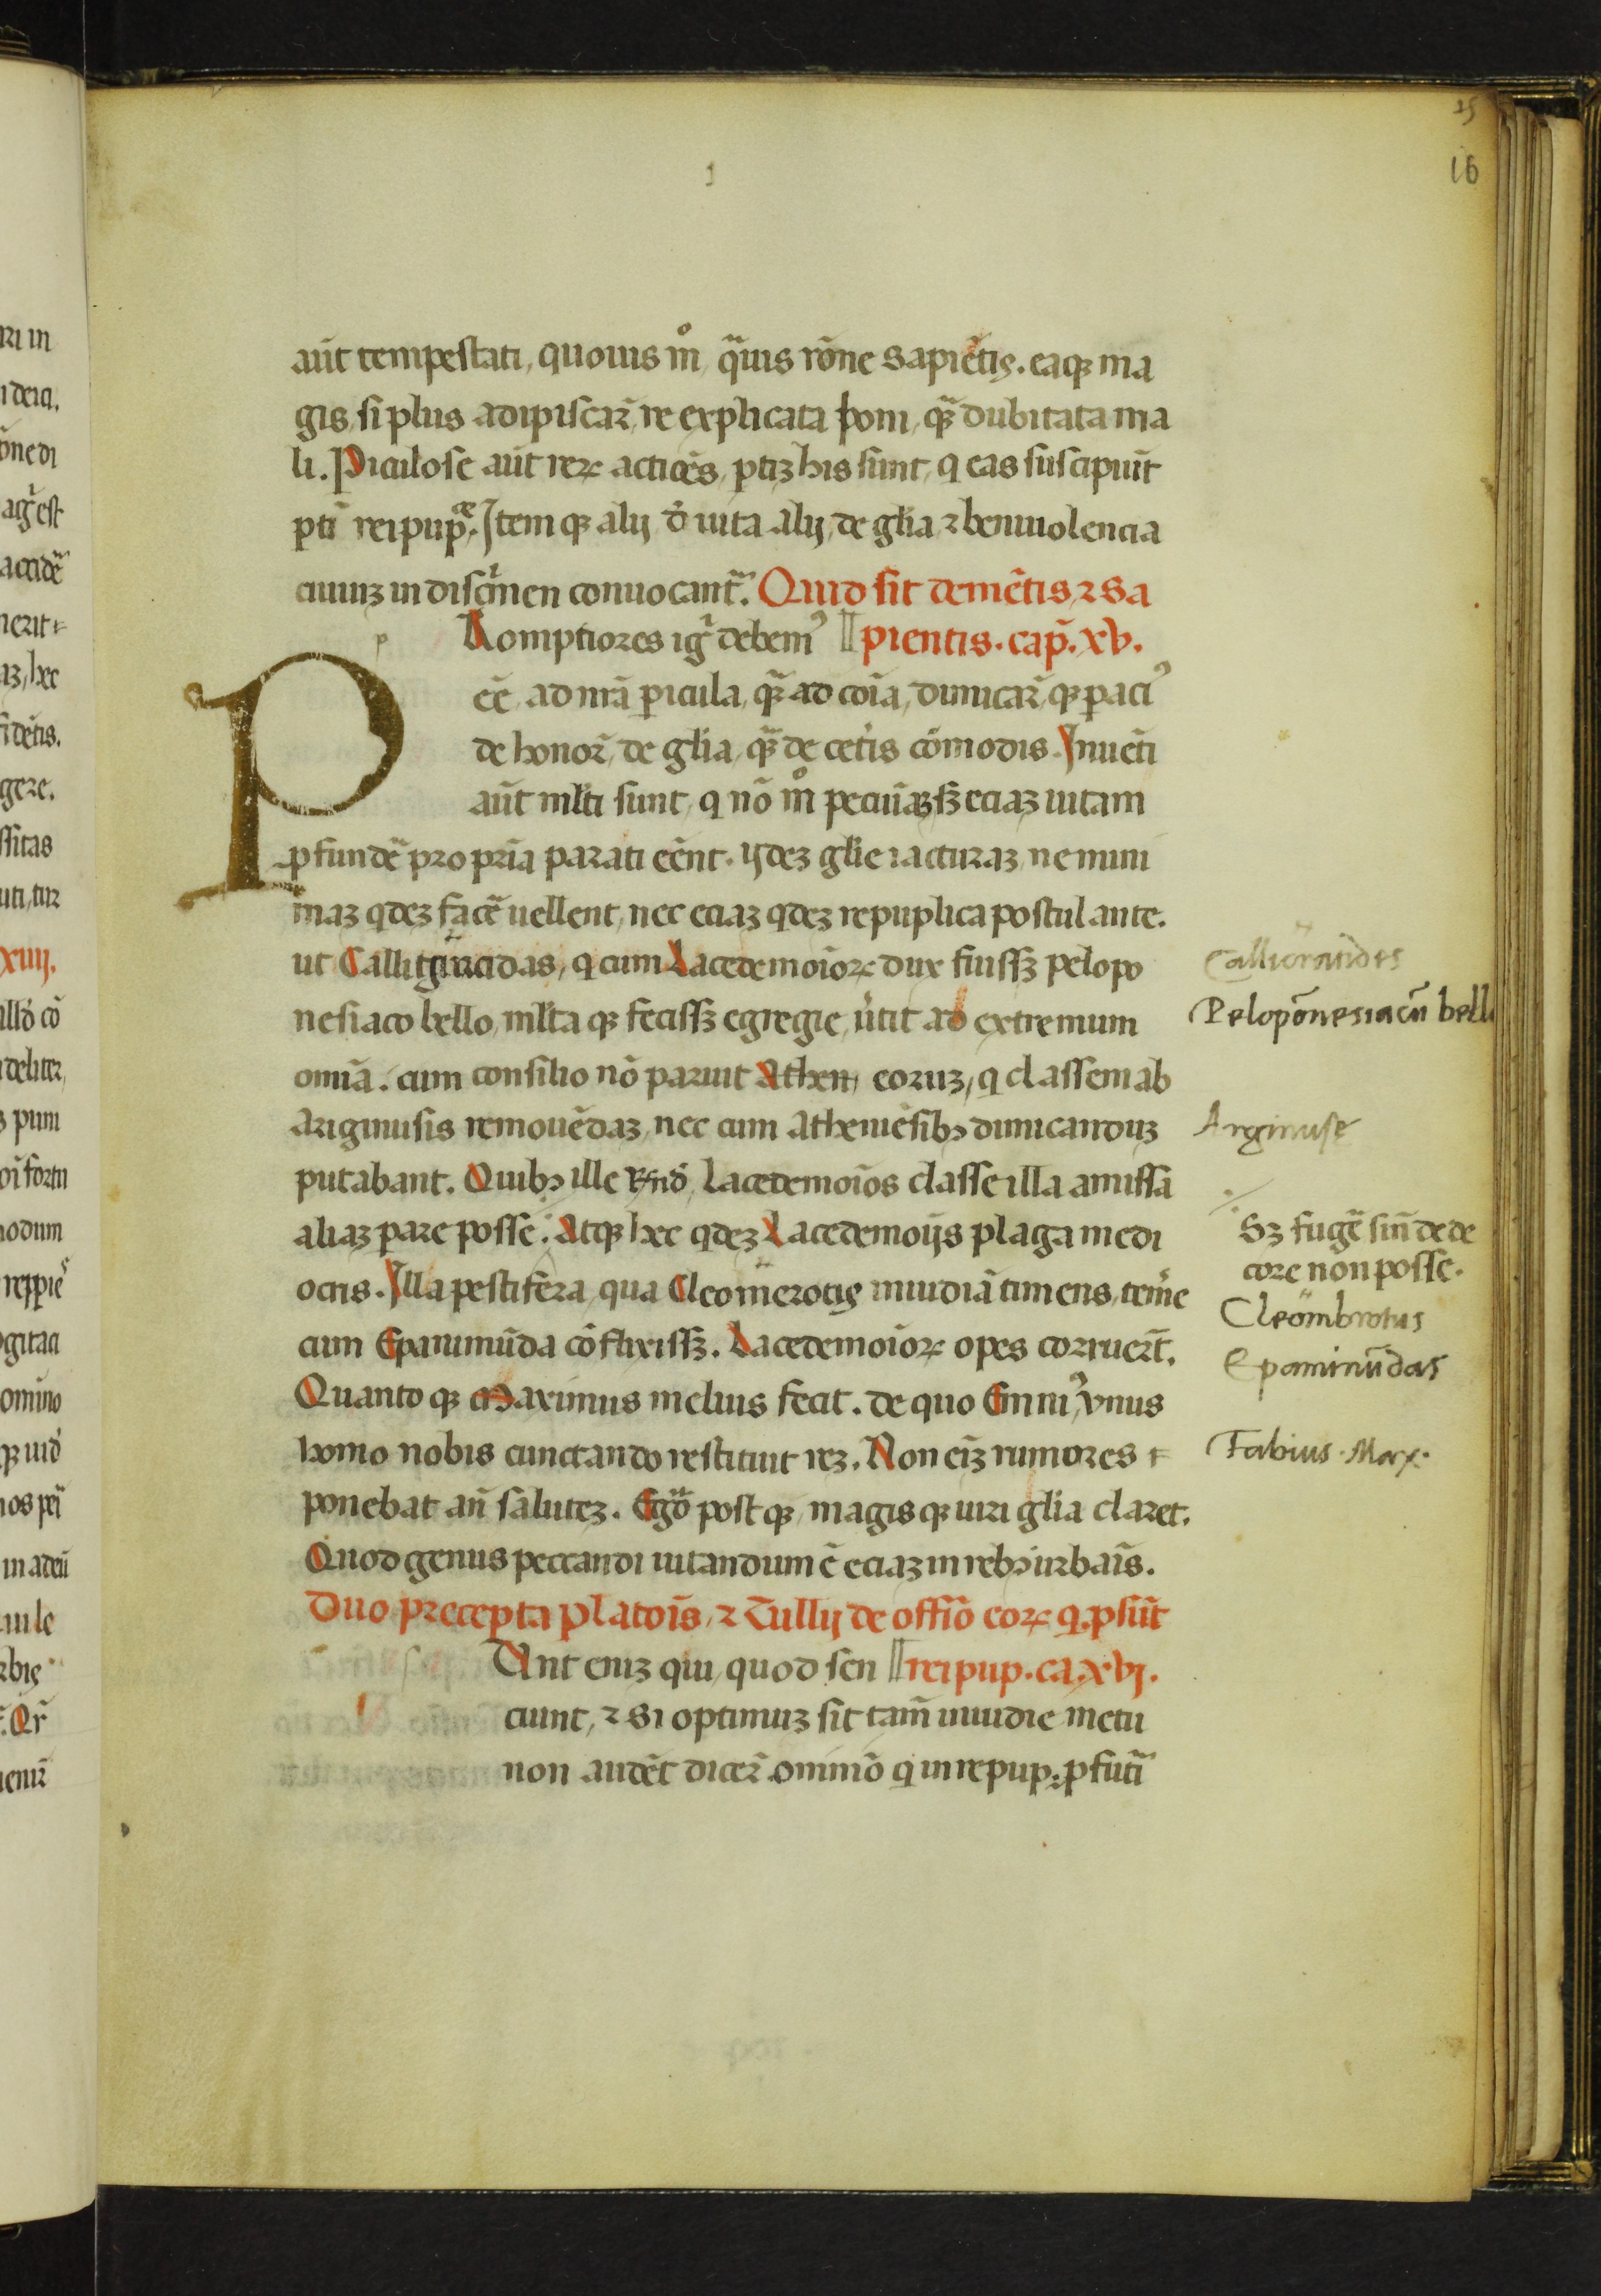 25
16
aūt tempestati, quouis mͦ, q̄uis rōne sapiētis. eaqꝫ ma
gis, si plus adipiscar̄, re explicata boni, qꝫ̄ dubitata ma
li. Piculose aūt reꝝ actiōes, ptiꝫ his sunt, q eas suscipiūt
pti reipupᵉ. Item qꝫ alij, d' uita alij, de gl̄ia ⁊ beniuolencia
ciuiuꝫ in discͥmen conuocant̄. Quid sit demētis, ⁊ sa
Romptiores igͥ debemꝰ pientis. cap̄. xv.
P
eē, ad nr̄a picula, qꝫ̄ ad cōia, dimicar̄, qꝫ paciꝰ
de honor̄, de gl̄ia, qꝫ̄ de cet̉is cōmodis. Inuēti
aūt ml̄ti sunt, q nō mͦ pecūiaꝫ, sꝫ eciaꝫ uitam
ꝓfundē pro pr̄ia parati eēnt. ijdeꝫ gl̄ie iacturaꝫ, ne mini
maꝫ qdeꝫ facē uellent, nec eciaꝫ qdeꝫ repuplica postulante.
ut Callitgͥracidas, q cum Lacedemōioꝝ dux fuissꝫ pelopo
nesiaco bello, ml̄ta qꝫ fecissꝫ egregie, ūtit ad extremum
omīa. cum consilio nō paruit Athen eoruꝫ, q classem ab
Ariginusis remouēdaꝫ, nec cum Atheniēsibꝫ dimicanduꝫ
putabant. Quibꝫ ille Rn̄d, Lacedemōios classe illa amissa
aliaꝫ pare posse. Atqꝫ hec qdeꝫ Lacedemoijs plaga medi
ocris. Illa pestifera, qua Cleomerotis inuidiā timens, temͤe
cum Epaminūda cōflixissꝫ. Lacedemōioꝝ opes corruer̄t.
Quanto qꝫ Maximus melius fecit. de quo Enniꝰ, vnus
homo nobis cunctando restituit reꝫ. Non eiꝫ rumores ⁊
ponebat an̄ salutez. Eg̊o post qꝫ, magis qꝫ uiri gl̄ia claret.
Quod genus peccandi uitandum ē eciaꝫ in rebꝫ urbaīs.
Duo precepta Platoīs, ⁊ Tullij de offiō eoꝝ q. psūt
Unt eniꝫ qui, quod sen reipup. ca. xvj.
ciunt, ⁊ si optimuꝫ sit tam̄ inuidie metu
non audēt dicer̄. ominō q in repup. ꝓfutͣi
Callicratides
Peloponesiacū bell
Arginuse
Sꝫ fugē sin̄ dede
core non posse.
Cleombrotus
Epaminūdas
Fabius. Max.